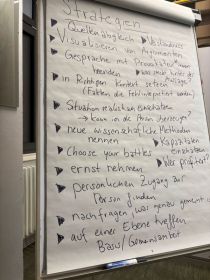 Strategien
Quellenabgleich Verständnis
Visualisieren von Argumenten
Gespräche mit Provokateur*innen
beenden was steckt hinter der
in Richtigen Kontext setzen Aussage?
(Fakten die Fehlinterpretiert werden)
Situation realistisch einschätzen
→ kann ich die Person überzeugen?
neue wissenschaftliche Methoden
nennen Kapazitäten
Choose your battles Einschätzen
ernst nehmen Wer profitiert?
persönlichen Zugang zur
Person finden
nachfragen was genau gemeint
auf einer Ebene treffen
Basis/Gemeinsamkeit